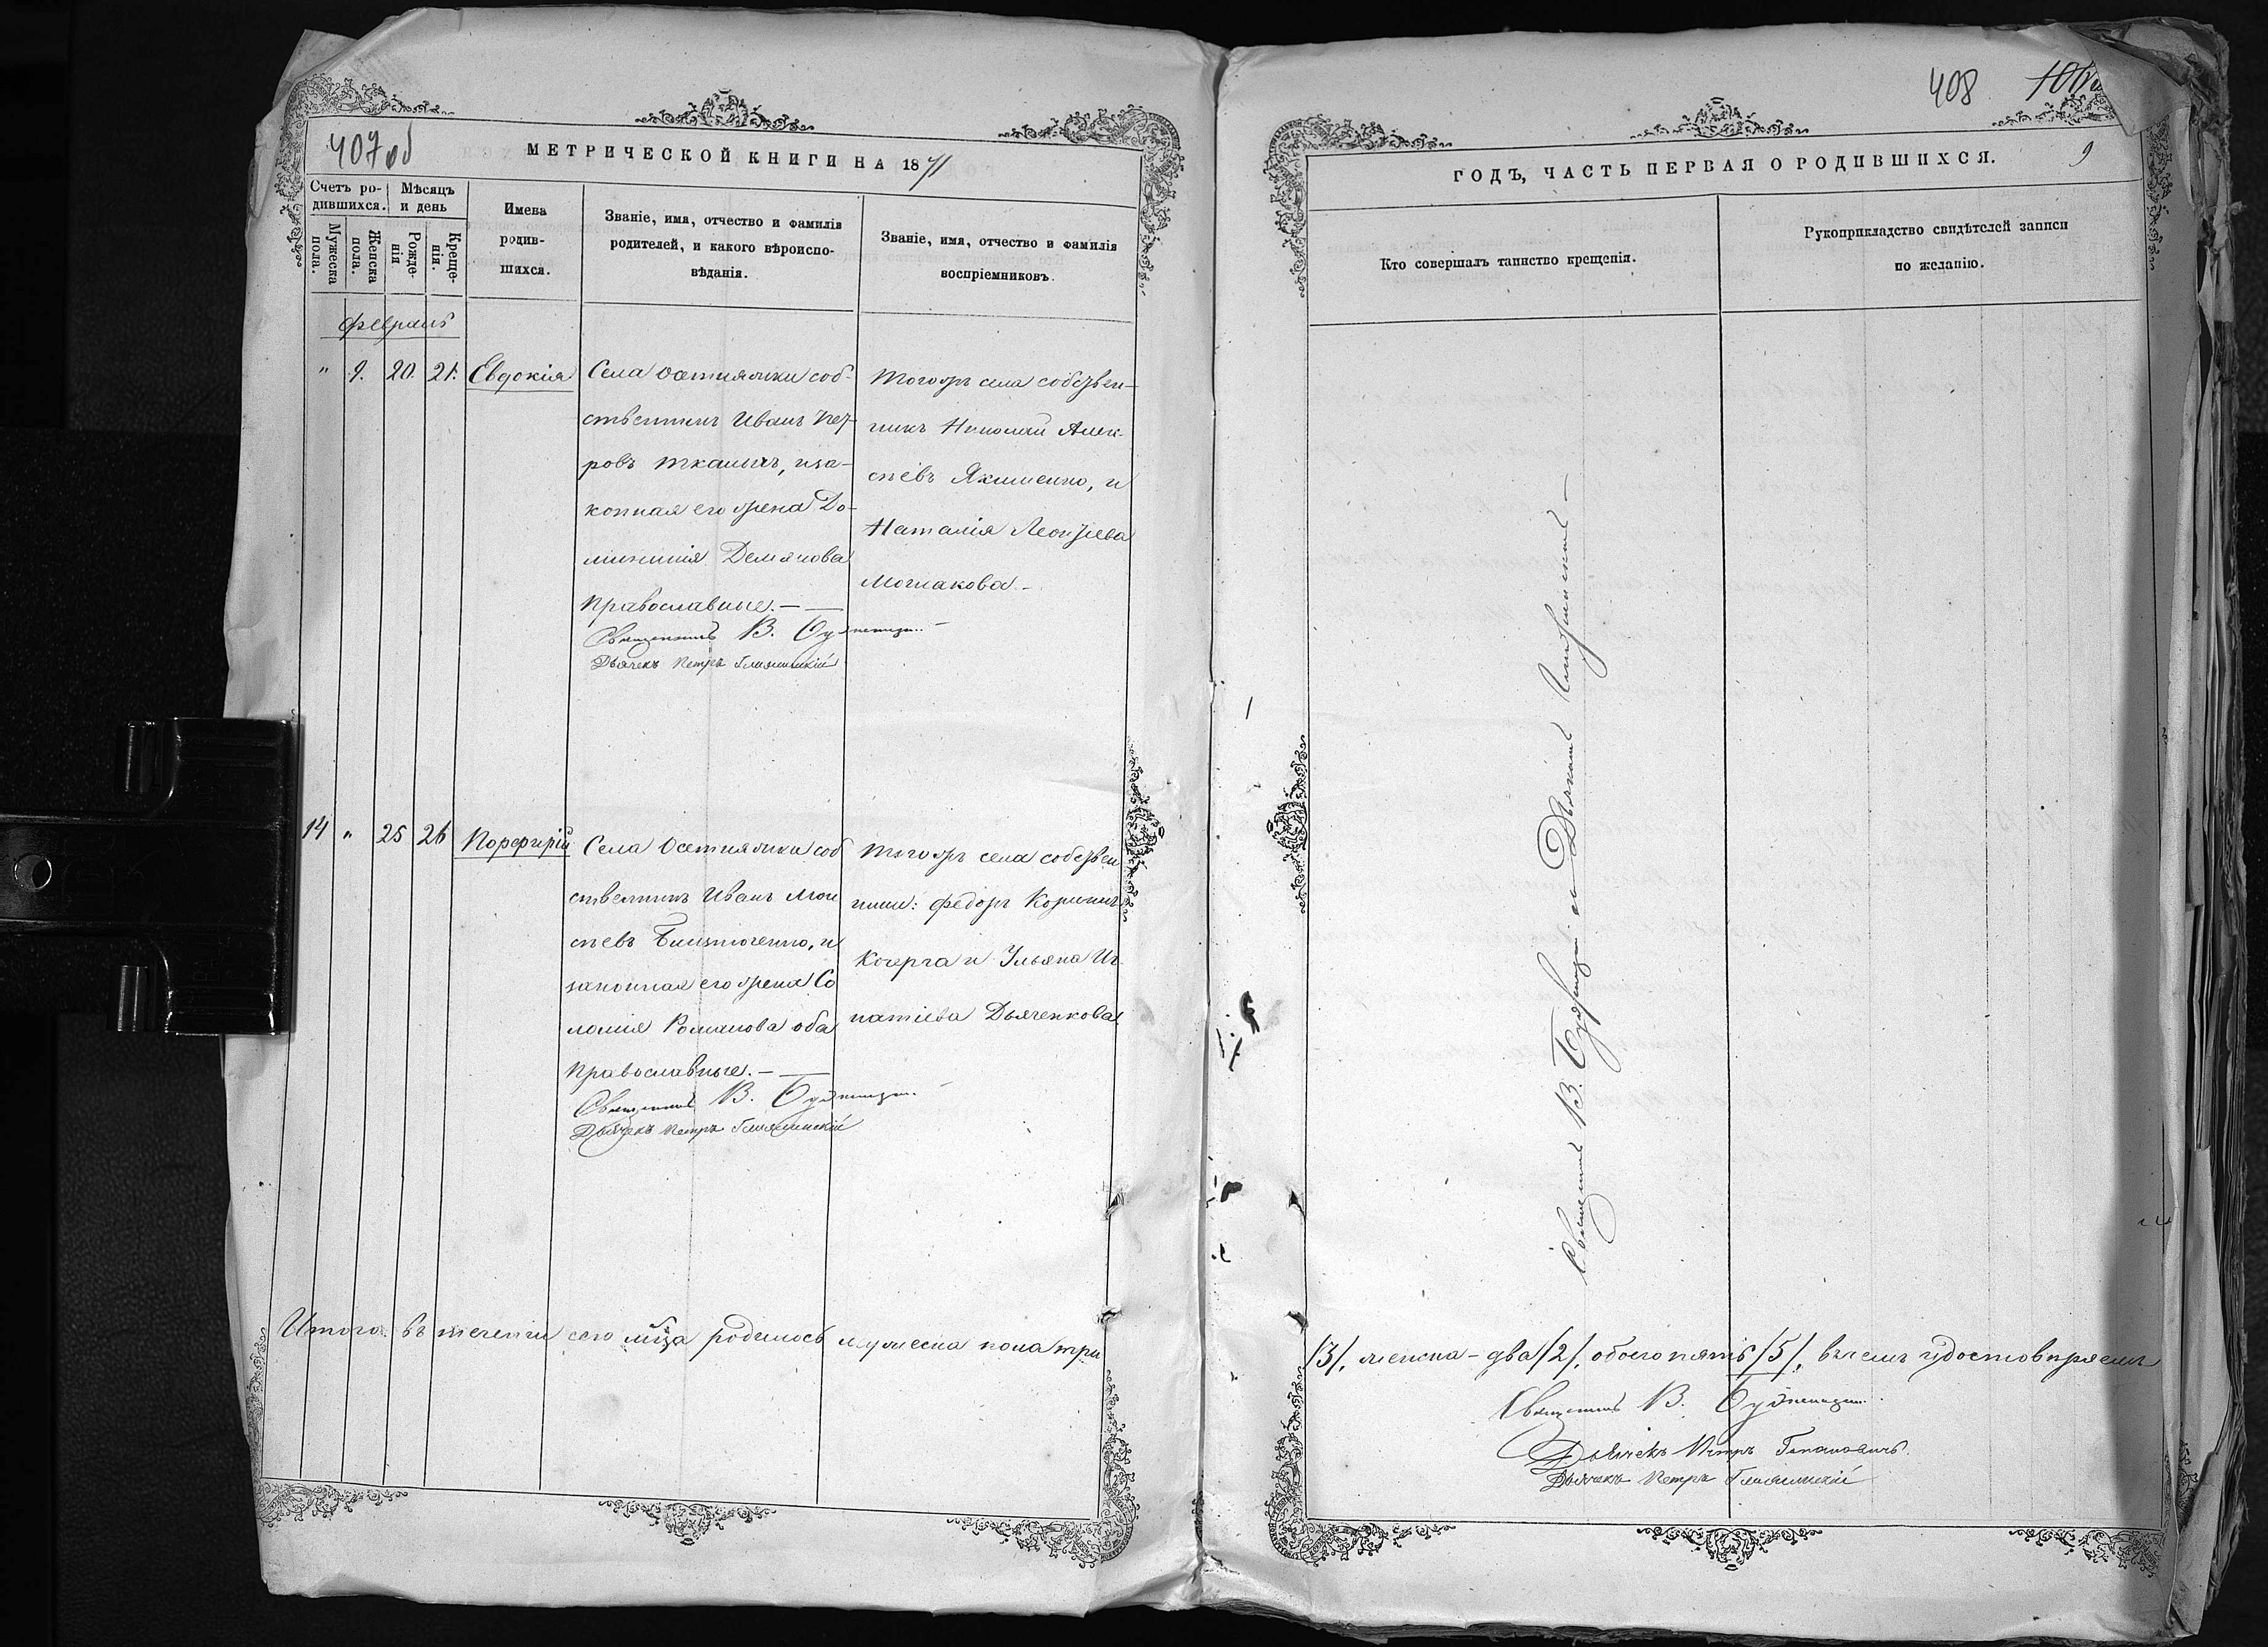 407 об
МЕТРИЧЕСКОЙ КНИГИ НА 1871
Счетъ ро-
дившихся.
Мѣсяцъ
и день
Мужеска
пола.
Женска
пола.
Рожде-
нія
Креще-
нія.
Имена
родив-
шихся.
Званіе, имя, отчество и фамилія
родителей, и какого вѣроиспо-
вѣданія.
Званіе, имя, отчество и фамилія
воспріемниковъ.
февраль
" 9. 20. 21. Евдокія
Села Остняжки соб-
ственникъ Иванъ Пет-
ровъ Ткачъ, и за-
конная его жена До-
Демянова
Православные. —
Священникъ В.
Дьячекъ Петръ
Тогожъ села собствен-
никъ Николай Алек-
сѣевъ Якименко, и
Наталія Леонтіева
14 " 25 26 Порфирій
Села Остняжки соб
ственникъ Иванъ Мои
сѣевъ Близнюченко, и
законная его жена Со
ломія Романова оба
Православные. —
Священникъ В.
Дьячекъ Петръ
Тогожъ села собствен
ники: Федоръ
Кочерга и Ульяна Иг
натіева Дьяченкова.
Итого въ теченіи сего мѣсяца родилось мужеска пола три
408 106
ГОДЪ, ЧАСТЬ ПЕРВАЯ О РОДИВШИХСЯ.
9
Кто совершалъ таинство крещенія.
Рукоприкладство свидѣтелей записи
по желанію.
Священникъ В. съ Дьячкомъ
/3/, женска – два /2/, обоего пять /5/, въ чемъ удостовѣряемъ
Священникъ В.
Дьячекъ Петръ
Дьячекъ Петръ